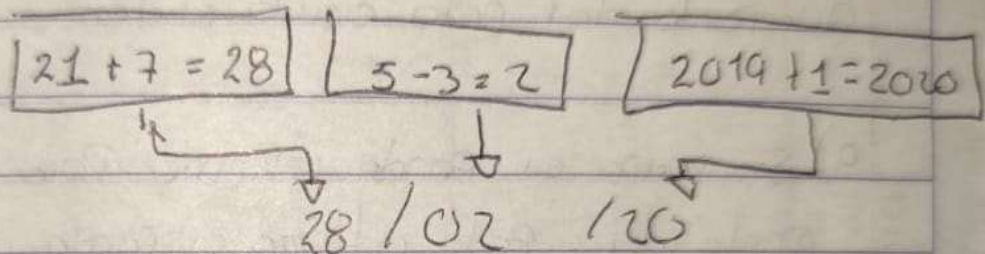 21 + 7 = 28 5 - 3 = 2 2019 + 1 = 2020
28 / 02 / 20